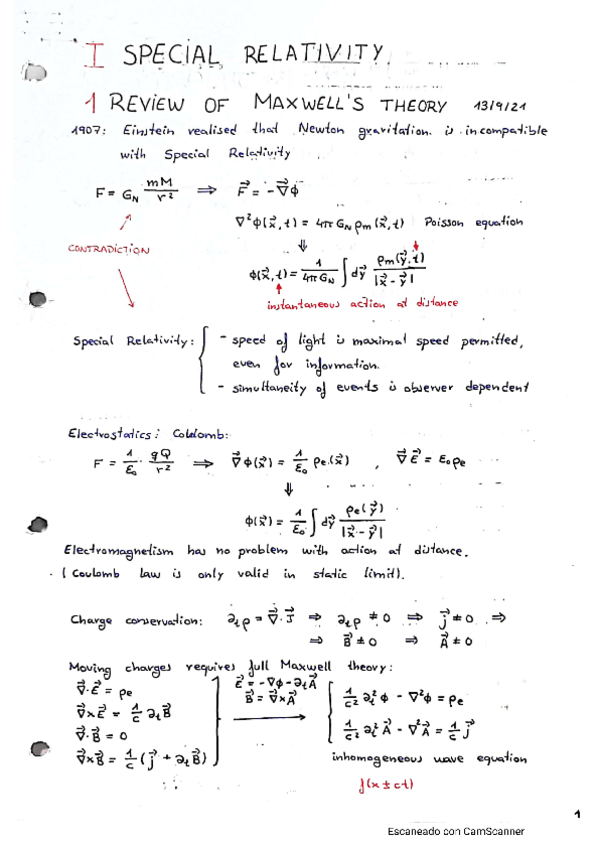 I SPECIAL RELATIVITY
1 REVIEW OF MAXWELL'S THEORY 13/9/21
1907: Einstein realised that Newton gravitation is incompatible
with Special Relativity
F = G_N mM/r² ⇒ F⃗ = -∇⃗ϕ
∇²ϕ(x⃗,t) = 4πG_N ρm(x⃗,t) Poisson equation
⇓
CONTRADICTION
ϕ(x⃗,t) = 1/4πG_N ∫dy⃗ ρm(y⃗,t)/|x⃗-y⃗|
instantaneous action at distance
Special Relativity: { - speed of light is maximal speed permitted,
even for information.
- simultaneity of events is observer dependent
Electrostatics: Coulomb:
F = 1/ε₀ · qQ/r² ⇒ ∇⃗ϕ(x⃗) = 1/ε₀ ρe(x⃗) , ∇⃗E⃗ = ε₀ρe
⇓
ϕ(x⃗) = 1/ε₀ ∫dy⃗ ρe(y⃗)/|x⃗-y⃗|
Electromagnetism has no problem with action at distance.
(Coulomb law is only valid in static limit).
Charge conservation: ∂tρ = ∇⃗·J⃗ ⇒ ∂tρ ≠ 0 ⇒ j⃗ ≠ 0 ⇒
⇒ B⃗ ≠ 0 ⇒ A⃗ ≠ 0
Moving charges requires full Maxwell theory:
∇⃗·E⃗ = ρe
∇⃗×E⃗ = 1/c ∂tB⃗
∇⃗·B⃗ = 0
∇⃗×B⃗ = 1/c (j⃗ + ∂tB⃗)
E⃗ = -∇ϕ - ∂tA⃗
B⃗ = ∇⃗×A⃗
1/c² ∂t²ϕ - ∇²ϕ = ρe
1/c² ∂t²A⃗ - ∇²A⃗ = 1/c j⃗
inhomogeneous wave equation
f(x ± ct)
1
Escaneado con CamScanner